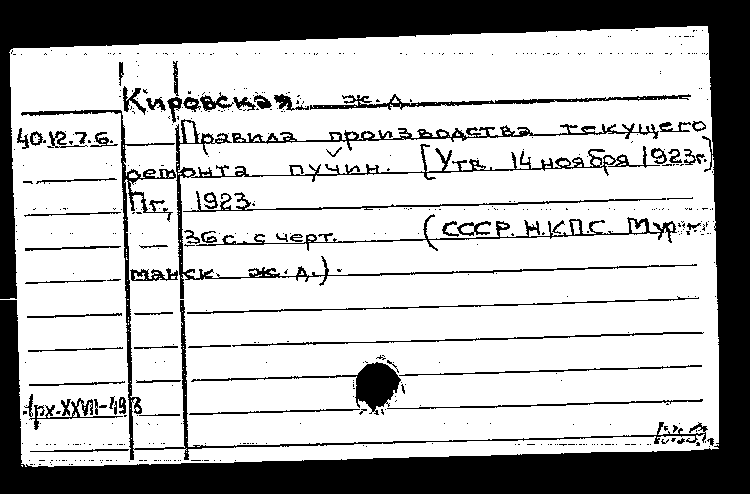 Кировская ж.д.
40.12.7.6. Правила производства текущего
ремонта пучин. [Утв. 14 ноября 1923г.]
Пг., 1923.
36 с. с черт. (СССР. Н.К.П.С. Мур-
манск. ж.д.).
Арх-XXVII-498